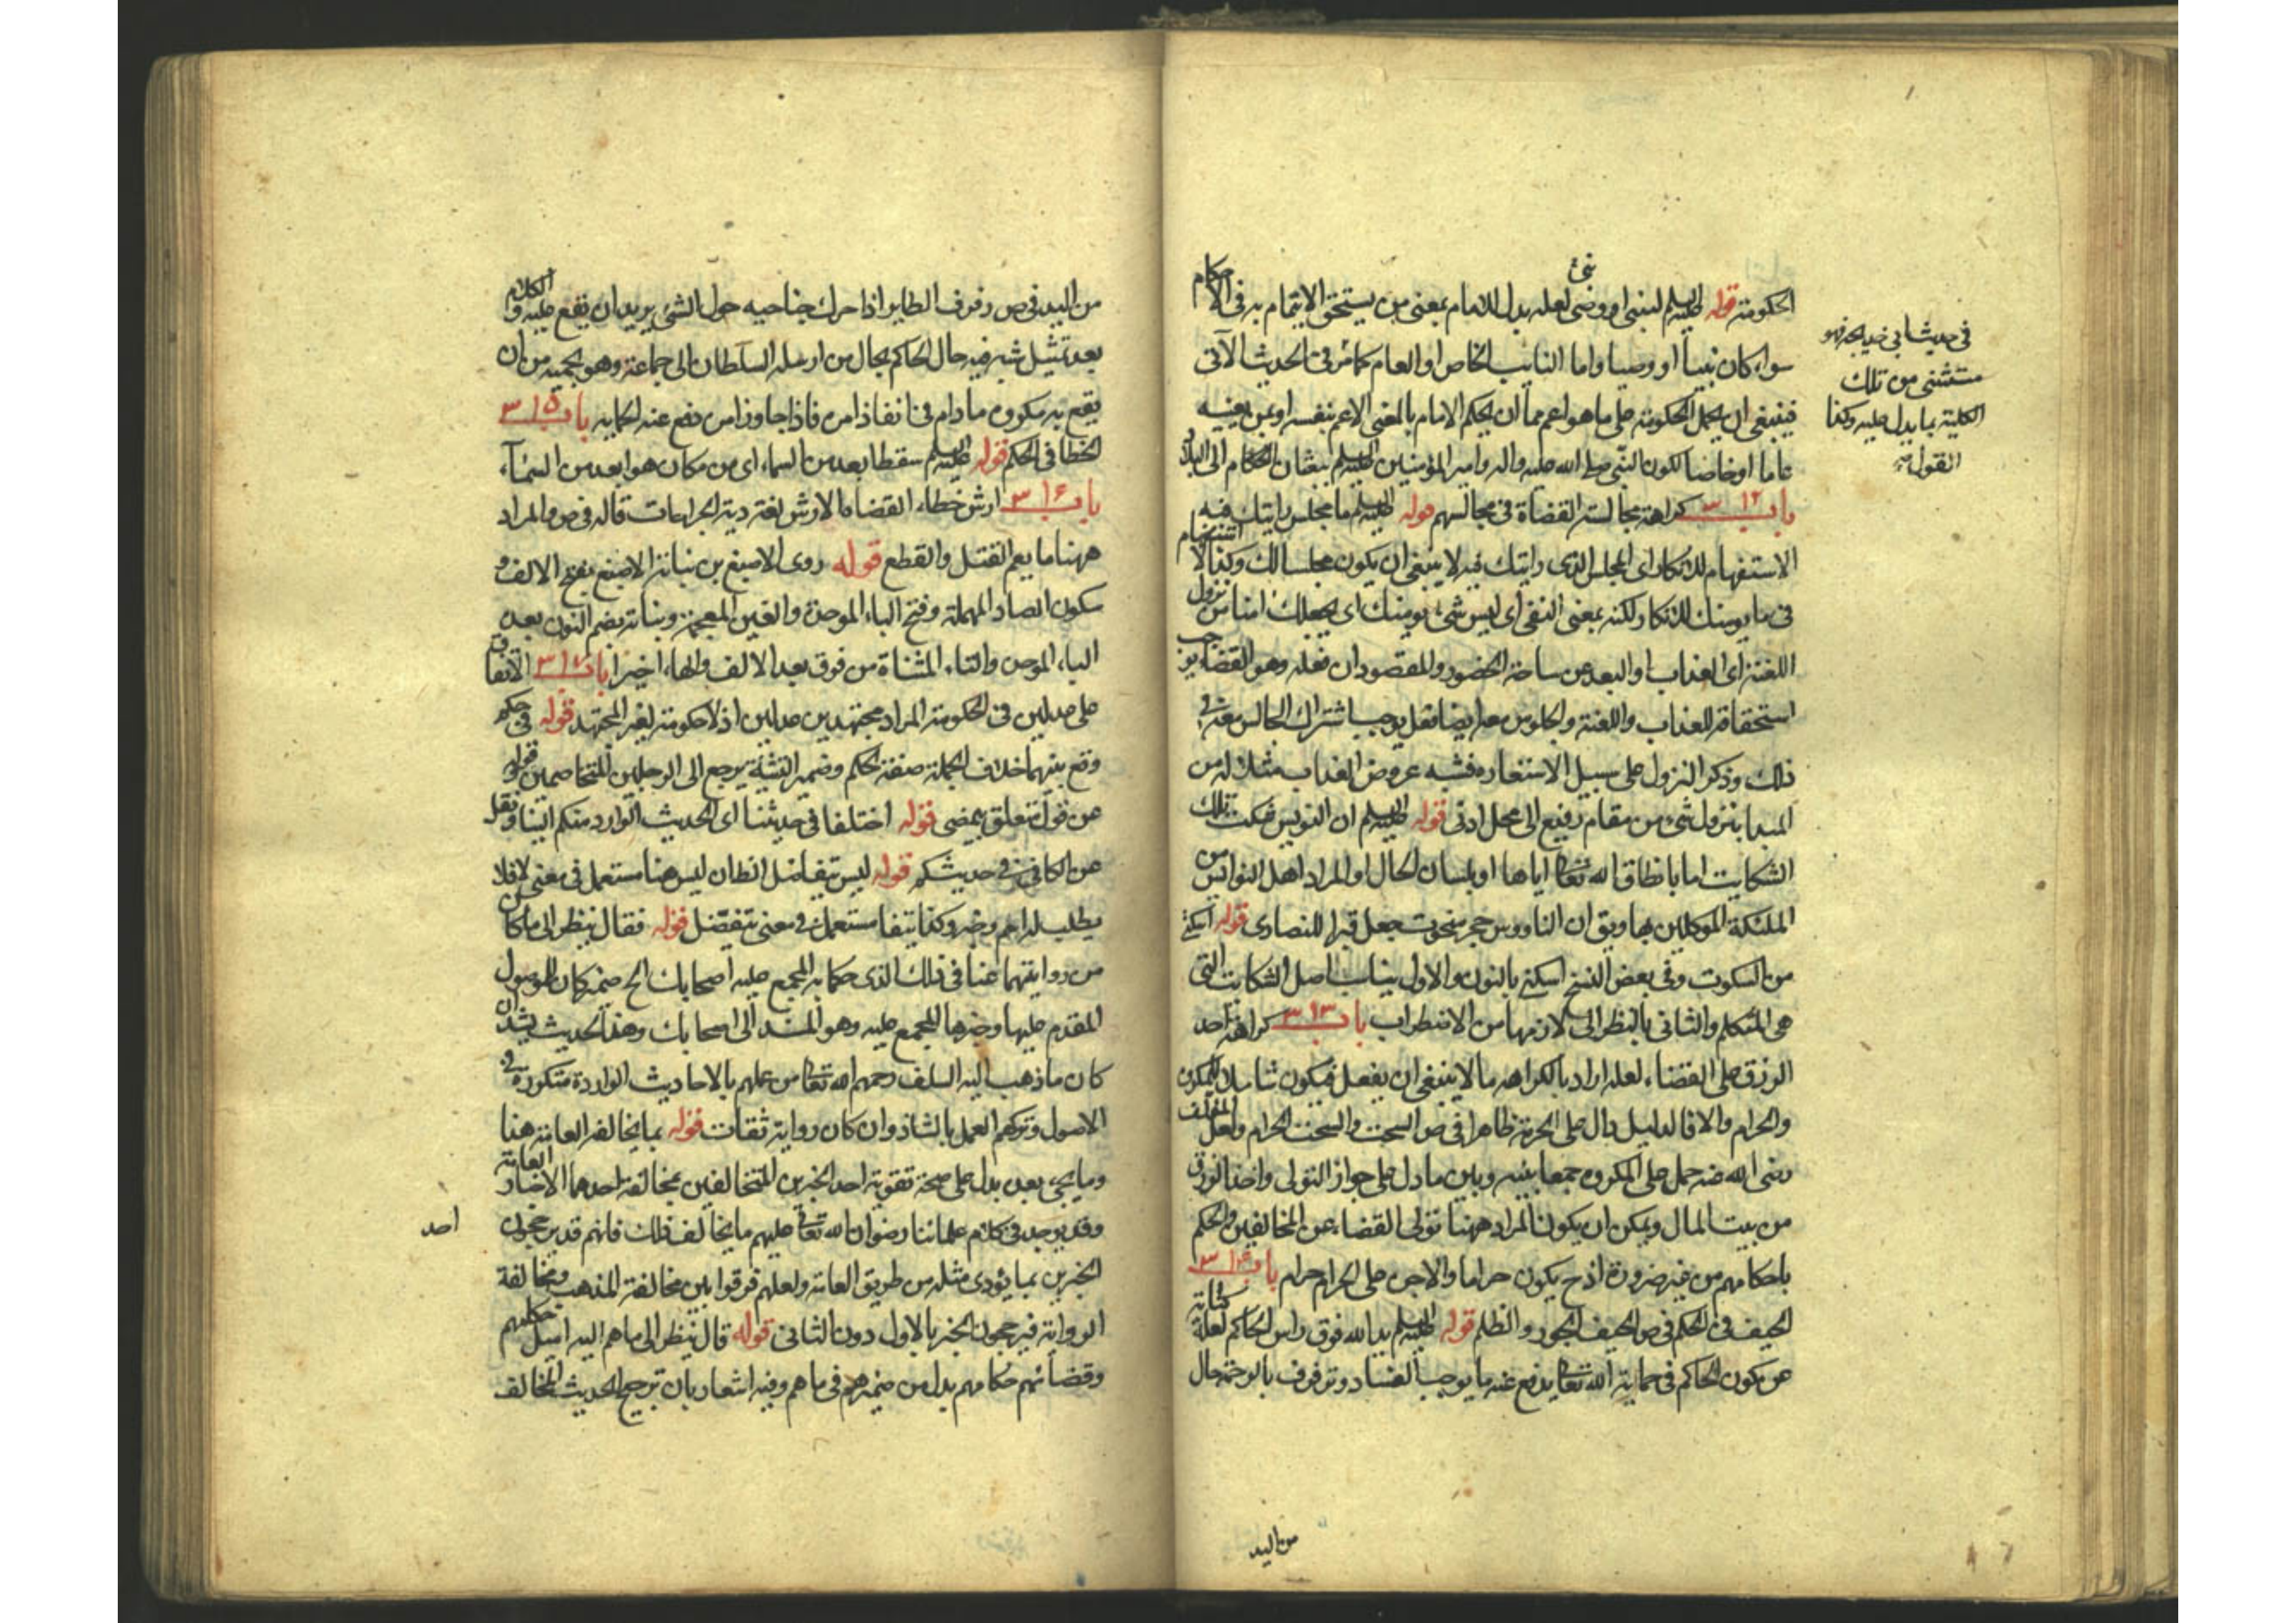 الحكومة قوله عليه السلم لنبي او وصى لعله بدل للامام بمعنى من يستحق الايتمام به فى الاحكام
سواء كان نبيا او وصيا واما النائب الخاص او العام كما مر فى الحديث الآتى
فينبغى ان يحمل الحكومة على ما هو اعم مما ان يحكم الامام بالمعنى الاعم بنفسه او بمن يعينه
عاما او خاصا لكون النبى صلى الله عليه واله وامير المؤمنين عليه السلم يبعثان الحكام الى البلاد
باب ٣١٢ كراهة مجالسة القضاة فى مجالسهم قوله عليه السلم ما مجلس رايتك فيه
الاستفهام للانكار اى المجلس الذى رايتك فيه لا ينبغى ان يكون مجلسا لك وكذا الاستفهام
فى ما يومنك للانكار لكنه بمعنى النفى اى ليس شىء يومنك اى يجعلك امنا من نزول
اللعنة اى العذاب او البعد عن ساحة الحضور والمقصود ان فعله وهو القضاء يوجب
استحقاقه للعذاب واللعنة والجلوس معه ايضا فعل يوجب اشتراك الجالس معه فى
ذلك وذكر النزول على سبيل الاستعاره فشبه عروض العذاب مثلا له من
المبدا بنزول شىء من مقام رفيع الى محل ادنى قوله عليه السلم ان النواويس شكت تلك
الشكايت اما بانطاق الله تعالى اياها او بلسان الحال او المراد اهل النواويس من
الملئكة الموكلين بها ويق ان الناووس حجر منحوت جعل قبرا للنصارى قوله اسكتى
من السكوت وفى بعض النسخ اسكنى بالنون والاول يناسب اصل الشكايت التى
هى التكلم والثانى بالنظر الى لازمها من الاضطراب باب ٣١٣ كراهة اخذ
الرزق على القضاء لعله اراد بالكراهه ما لا ينبغى ان يفعل فيكون شاملا للمكروه
والحرام والا فالدليل دال على الحرمة ظاهرا فى ص السحت والسحت الحرام ولعل المؤلف
رضى الله عنه حمل على المكروه جمعا بينه وبين ما دل على جواز التولى واخذ الرزق
من بيت المال ويمكن ان يكون المراد ههنا تولى القضاء عن المخالفين والحكم
باحكامهم من غير ضرورة اذ ح يكون حراما والاجر على الحرام حرام باب ٣١٤
الحيف فى الحكم فى ص الحيف الجور والظلم قوله عليه السلم يد الله فوق راس الحاكم لعله كناية
عن كون الحاكم فى حماية الله تعالى يدفع عنه ما يوجب الفساد وترفرف بالرحمة حال
فى حديث ابى خديجه فهو
مستثنى من تلك
الكلية بما يدل عليه وكذا
القول
من اليد
من اليد فى ص رفرف الطاير اذا حرك جناحيه حول الشىء يريد ان يقع عليه والكلام
بعد تمثيل شبه فيه حال الحاكم بحال من ارسله السلطان الى جماعة وهو يحميه من ان
يقع به مكروه ما دام فى انفاذ امره فاذا جاوز امره دفع عنه الحمايه باب ٣١٥
الخطا فى الحكم قوله عليه السلم سقط ابعد من السماء اى من مكان هو ابعد من السماء
باب ٣١٦ ارش خطاء القضاه الارش لغة دية الجراحات قاله فى ص والمراد
ههنا ما يعم القتل والقطع قوله روى الاصبغ بن نباتة الاصبغ بفتح الالف و
سكون الصاد المهملة وفتح الباء الموحدة والغين المعجمة ونباتة بضم النون بعده
الباء الموحده والتاء المثناة من فوق بعد الالف والهاء اخيرا باب ٣١٧ الاتفاق
على عدلين فى الحكومة المراد مجتهدين عدلين اذ لا حكومة لغير المجتهد قوله فى حكم
وقع بينهما خلاف الجملة صفة لحكم وضمير التثنية يرجع الى الرجلين المتخاصمين قوله
عن قول متعلق بيمضى قوله اختلفا فى حديثنا اى الحديث الوارد منكم الينا ونقل
عن الكافى فى حديثكم قوله ليس يتفاضل الظان ليس هنا مستعمل فى معنى لا فلا
يطلب له اسم وخبر وكذا يتفاضل مستعمل فى معنى يتفضل قوله فقال ينظر الى ما كان
من روايتهما عنا فى ذلك الذى حكما به المجمع عليه اصحابك الخ ضميركان للموصول
المقدم عليها وخبرها المجمع عليه وهو المسند الى اصحابك وهذا الحديث يشد ان
كان ما ذهب اليه السلف رحمهم الله تعالى من عملهم بالاحاديث الواردة متكررة فى
الاصول وتركهم العمل بالشاذ وان كان رواية ثقات قوله بما يخالف العامة هنا
وما يجىء بعد يدل على صحة تقوية احد الخبرين المتخالفين بمخالفة احدهما الاخبار العامة
وقد يوجد فى كلام علمائنا رضوان الله تعالى عليهم ما يخالف ذلك فانهم قد يرجحون
الخبرين بما يؤدى مثله من طريق العامة ولعلهم فرقوا بين مخالفة المذهب ومخالفة
الرواية فيرجحون الخبر بالاول دون الثانى قوله قال ينظر الى ما هم اليه اميل حكامهم
وقضاتهم حكامهم بدل من ضمير هم فى ما هم وفيه اشعار بان ترجيح الحديث المخالف
احد